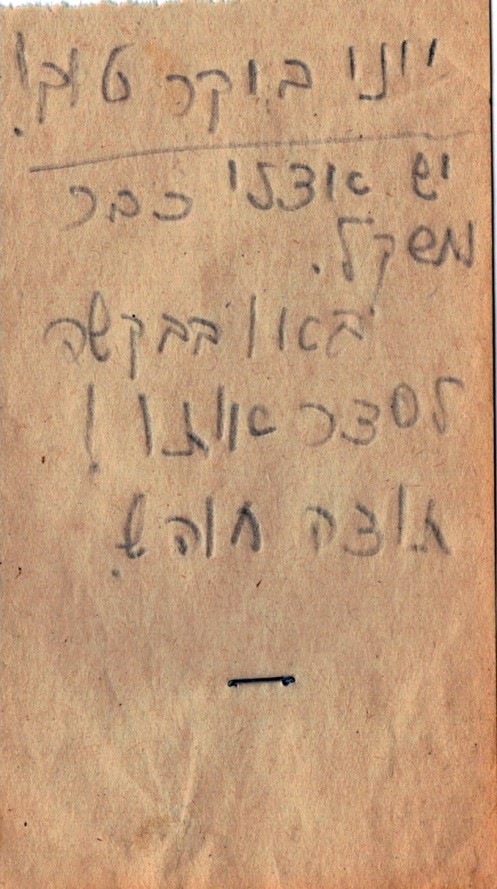 יוני בוקר טוב!
יש אצלי כבר
משקל.
בואו בבקשה
לסדר אותו!
תודה חוה ש.